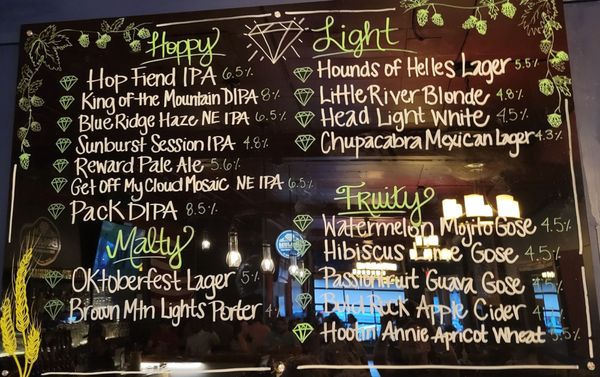 Hoppy
Hop Fiend IPA 6.5%
King of the Mountain DIPA 8%
Blue Ridge Haze NE IPA 6.5%
Sunburst Session IPA 4.8%
Reward Pale Ale 5.6%
Get Off My Cloud Mosaic NE IPA 6.5%
Pack DIPA 8.5%
Malty
Oktoberfest Lager 5%
Brown Mtn Lights Porter
Light
Hounds of Helles Lager 5.5%
Little River Blonde 4.8%
Head Light White 4.5%
Chupacabra Mexican Lager 4.3%
Fruity
Watermelon Mojito Gose 4.5%
Hibiscus Lime Gose 4.5%
Passionfruit Guava Gose 4.5%
Bold Rock Apple Cider
Hootin' Annie Apricot Wheat 5.5%